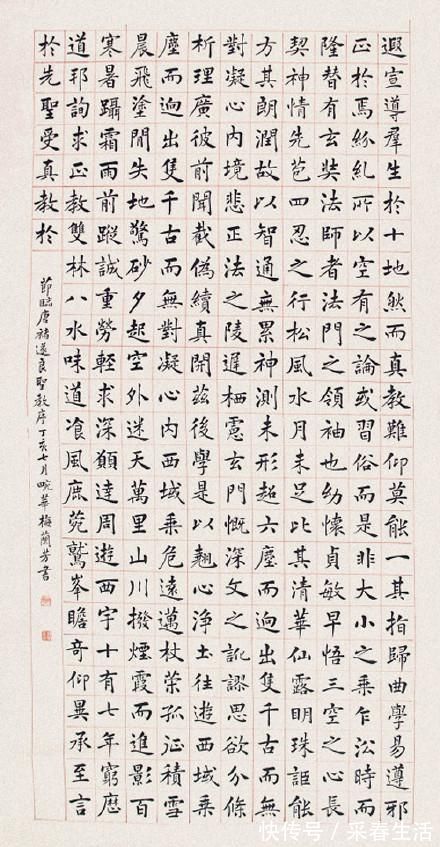 遐宣導羣生於十地然而真教難仰莫能一其指歸曲學易遵邪
正於焉紛糺所以空有之論或習俗而是非大小之乘乍沿時而
隆替有玄奘法師者法門之領袖也幼懷貞敏早悟三空之心長
契神情先苞四忍之行松風水月未足比其清華仙露明珠詎能
方其朗潤故以智通無累神測未形超六塵而迥出隻千古而無
對凝心內境悲正法之陵遲栖慮玄門慨深文之訛謬思欲分條
析理廣彼前聞截偽續真開茲後學是以翹心淨土往遊西域乘
塵而迥出隻千古而無對凝心內西域乘危遠邁杖策孤征積雪
晨飛塗閒失地驚砂夕起空外迷天萬里山川撥煙霞而進影百
寒暑躡霜雨前蹤誠重勞輕求深願達周遊西宇十有七年窮歷
道邦詢求正教雙林八水味道飡風鹿菀鷲峯瞻奇仰異承至言
於先聖受真教於
節臨唐褚遂良聖教序丁亥七月畹華梅蘭芳書
快传号 / 采春生活